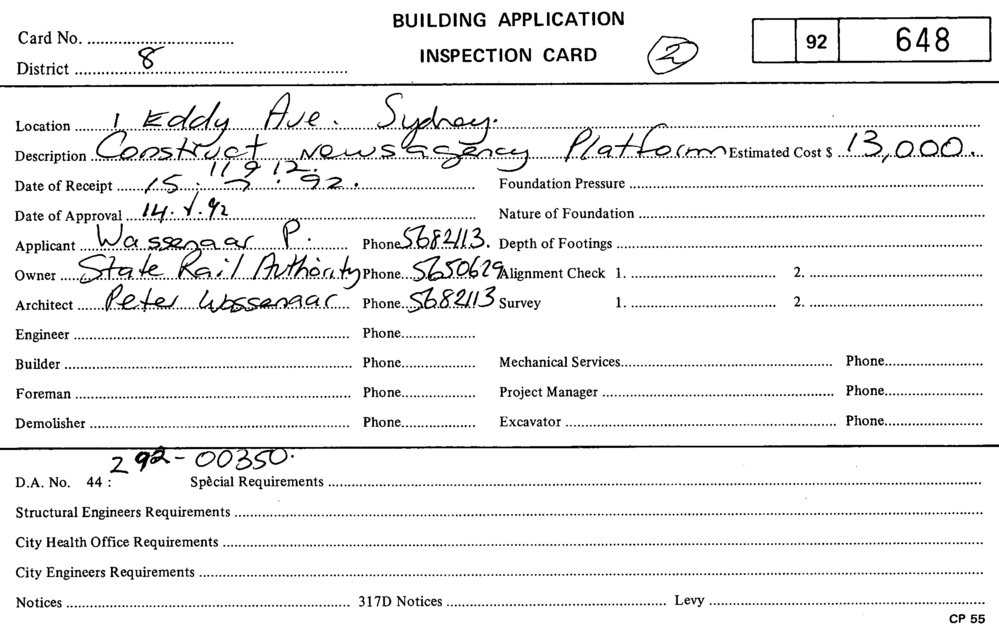 BUILDING APPLICATION
INSPECTION CARD
Card No.
District 8
2
92 648
Location 1 Eddy Ave. Sydney.
Description Construct newsagency Platform Estimated Cost $ 13,000.
11 9 12.
Date of Receipt 15. 7. 92. Foundation Pressure
Date of Approval 14. 92 Nature of Foundation
Applicant Wassenaar P. Phone 5682113. Depth of Footings
Owner State Rail Authority Phone 5650629 Alignment Check 1. 2.
Architect Peter Wassenaar Phone 5682113 Survey 1. 2.
Engineer Phone
Builder Phone Mechanical Services Phone
Foreman Phone Project Manager Phone
Demolisher Phone Excavator Phone
292-00350.
D.A. No. 44 : Special Requirements
Structural Engineers Requirements
City Health Office Requirements
City Engineers Requirements
Notices 317D Notices Levy
CP 55